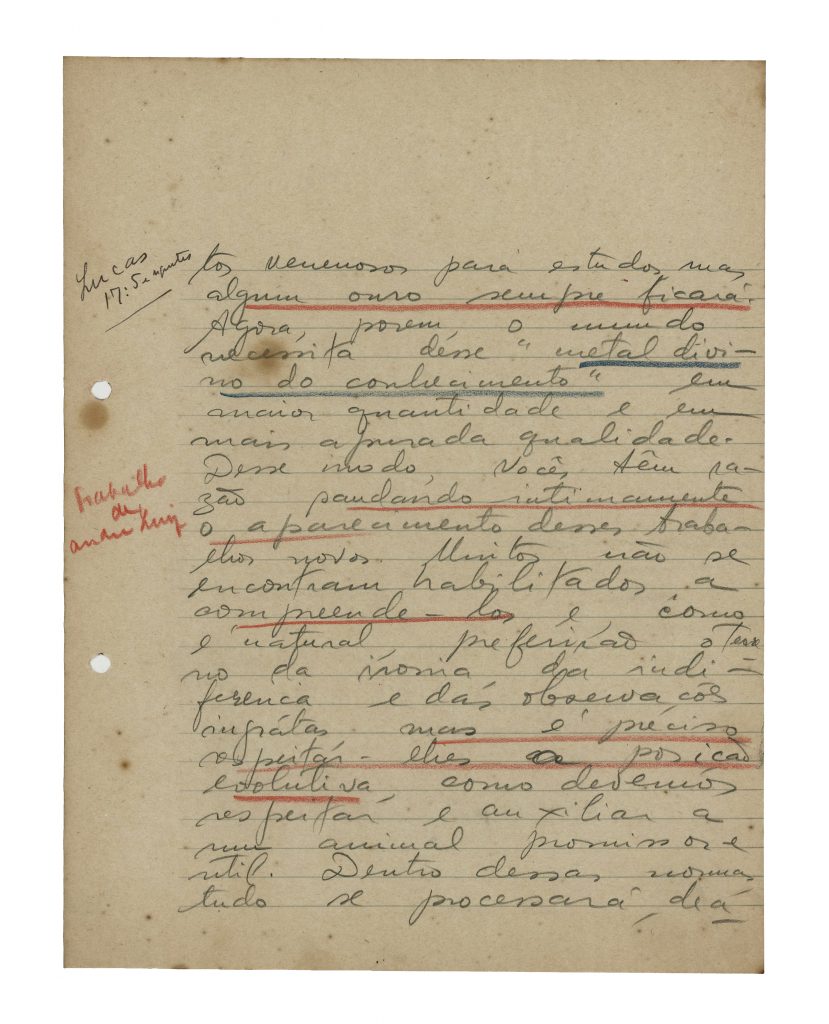 Lucas
17:5 e seguintes
tos venenosos para estudos, mas
algum ouro sempre ficará.
Agora, porem, o mundo
necessita désse "metal divi-
no do conhecimento" em
maior quantidade e em
mais apurada qualidade.
Desse modo, vocês têm ra-
zão saudando intimamente
o aparecimento desses traba-
lhos novos. Muitos não se
encontram habilitados a
compreende-los e, como
é natural, preferirão o terre
no da ironia da indi-
ferença e das observações
ingrátas mas é preciso
respeitár-lhes a posição
evolutiva, como devemos
respeitar e auxiliar a
um animal promissor e
util. Dentro dessas normas
tudo se processará, de á
Trabalho
de
André Luiz